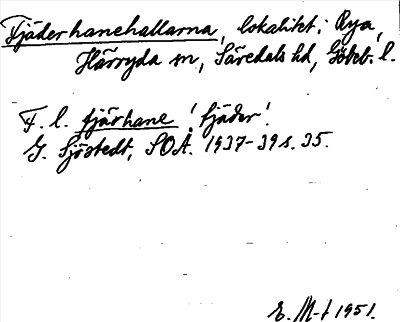 Fjäderhanehallarna, lokalitet i Rya,
Härryda sn, Säredals hd, Göteb. l.
F. l. fjärhane 'fjäder'.
G. Sjöstedt, SOÅ. 1937-39 s. 35.
E. M-t 1951.